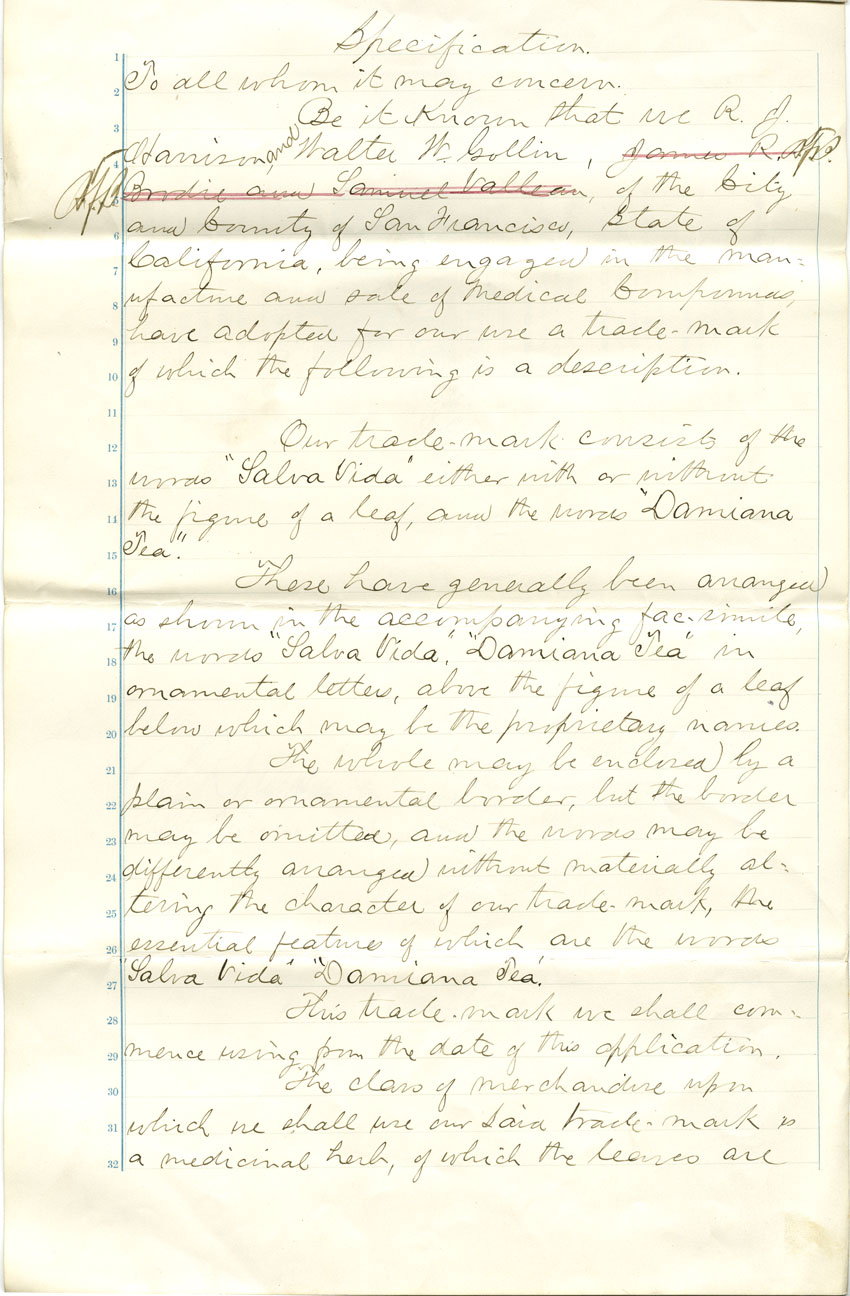 Specification.
To all whom it may concern.
Be it Known that we R. J.
Harrison, and Walter W. Gollin, James R.
Brodie and Samuel Valleau, of the City
and County of San Francisco, State of
California, being engaged in the man=
ufacture and sale of Medical Compounds,
have adopted for our use a trade-mark
of which the following is a description.
Our trade-mark consists of the
words "Salva Vida" either with or without
the figure of a leaf, and the words "Damiana
Tea".
These have generally been arranged
as shown in the accompanying fac-simile,
the words "Salva Vida", "Damiana Tea" in
ornamental letters, above the figure of a leaf
below which may be the proprietary names.
The whole may be enclosed by a
plain or ornamental border, but the border
may be omitted, and the words may be
differently arranged without materially al=
tering the character of our trade-mark, the
essential features of which are the words
"Salva Vida" "Damiana Tea".
This trade-mark we shall com=
mence using from the date of this application.
The class of merchandise upon
which we shall use our said trade-mark is
a medicinal herb, of which the leaves are
1
2
3
4
5
6
7
8
9
10
11
12
13
14
15
16
17
18
19
20
21
22
23
24
25
26
27
28
29
30
31
32